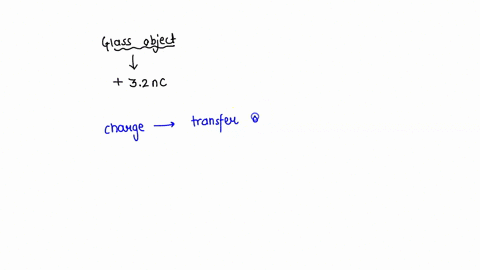 Glass object
↓
+ 3.2nC
charge → transfer